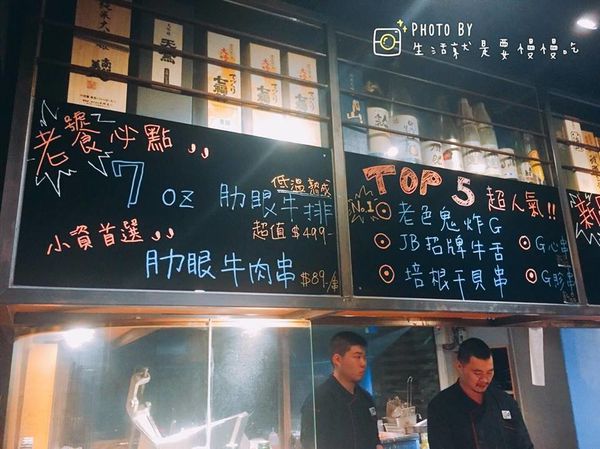 PHOTO BY
生活就是要慢慢吃
老饕必點
7 oz 肋眼牛排
低溫熟成
超值 $499-
小資首選
肋眼牛肉串 $89/串
TOP 5 超人氣!!
No.1 老色鬼炸G
JB招牌牛舌
培根干貝串
G心串
G胗串